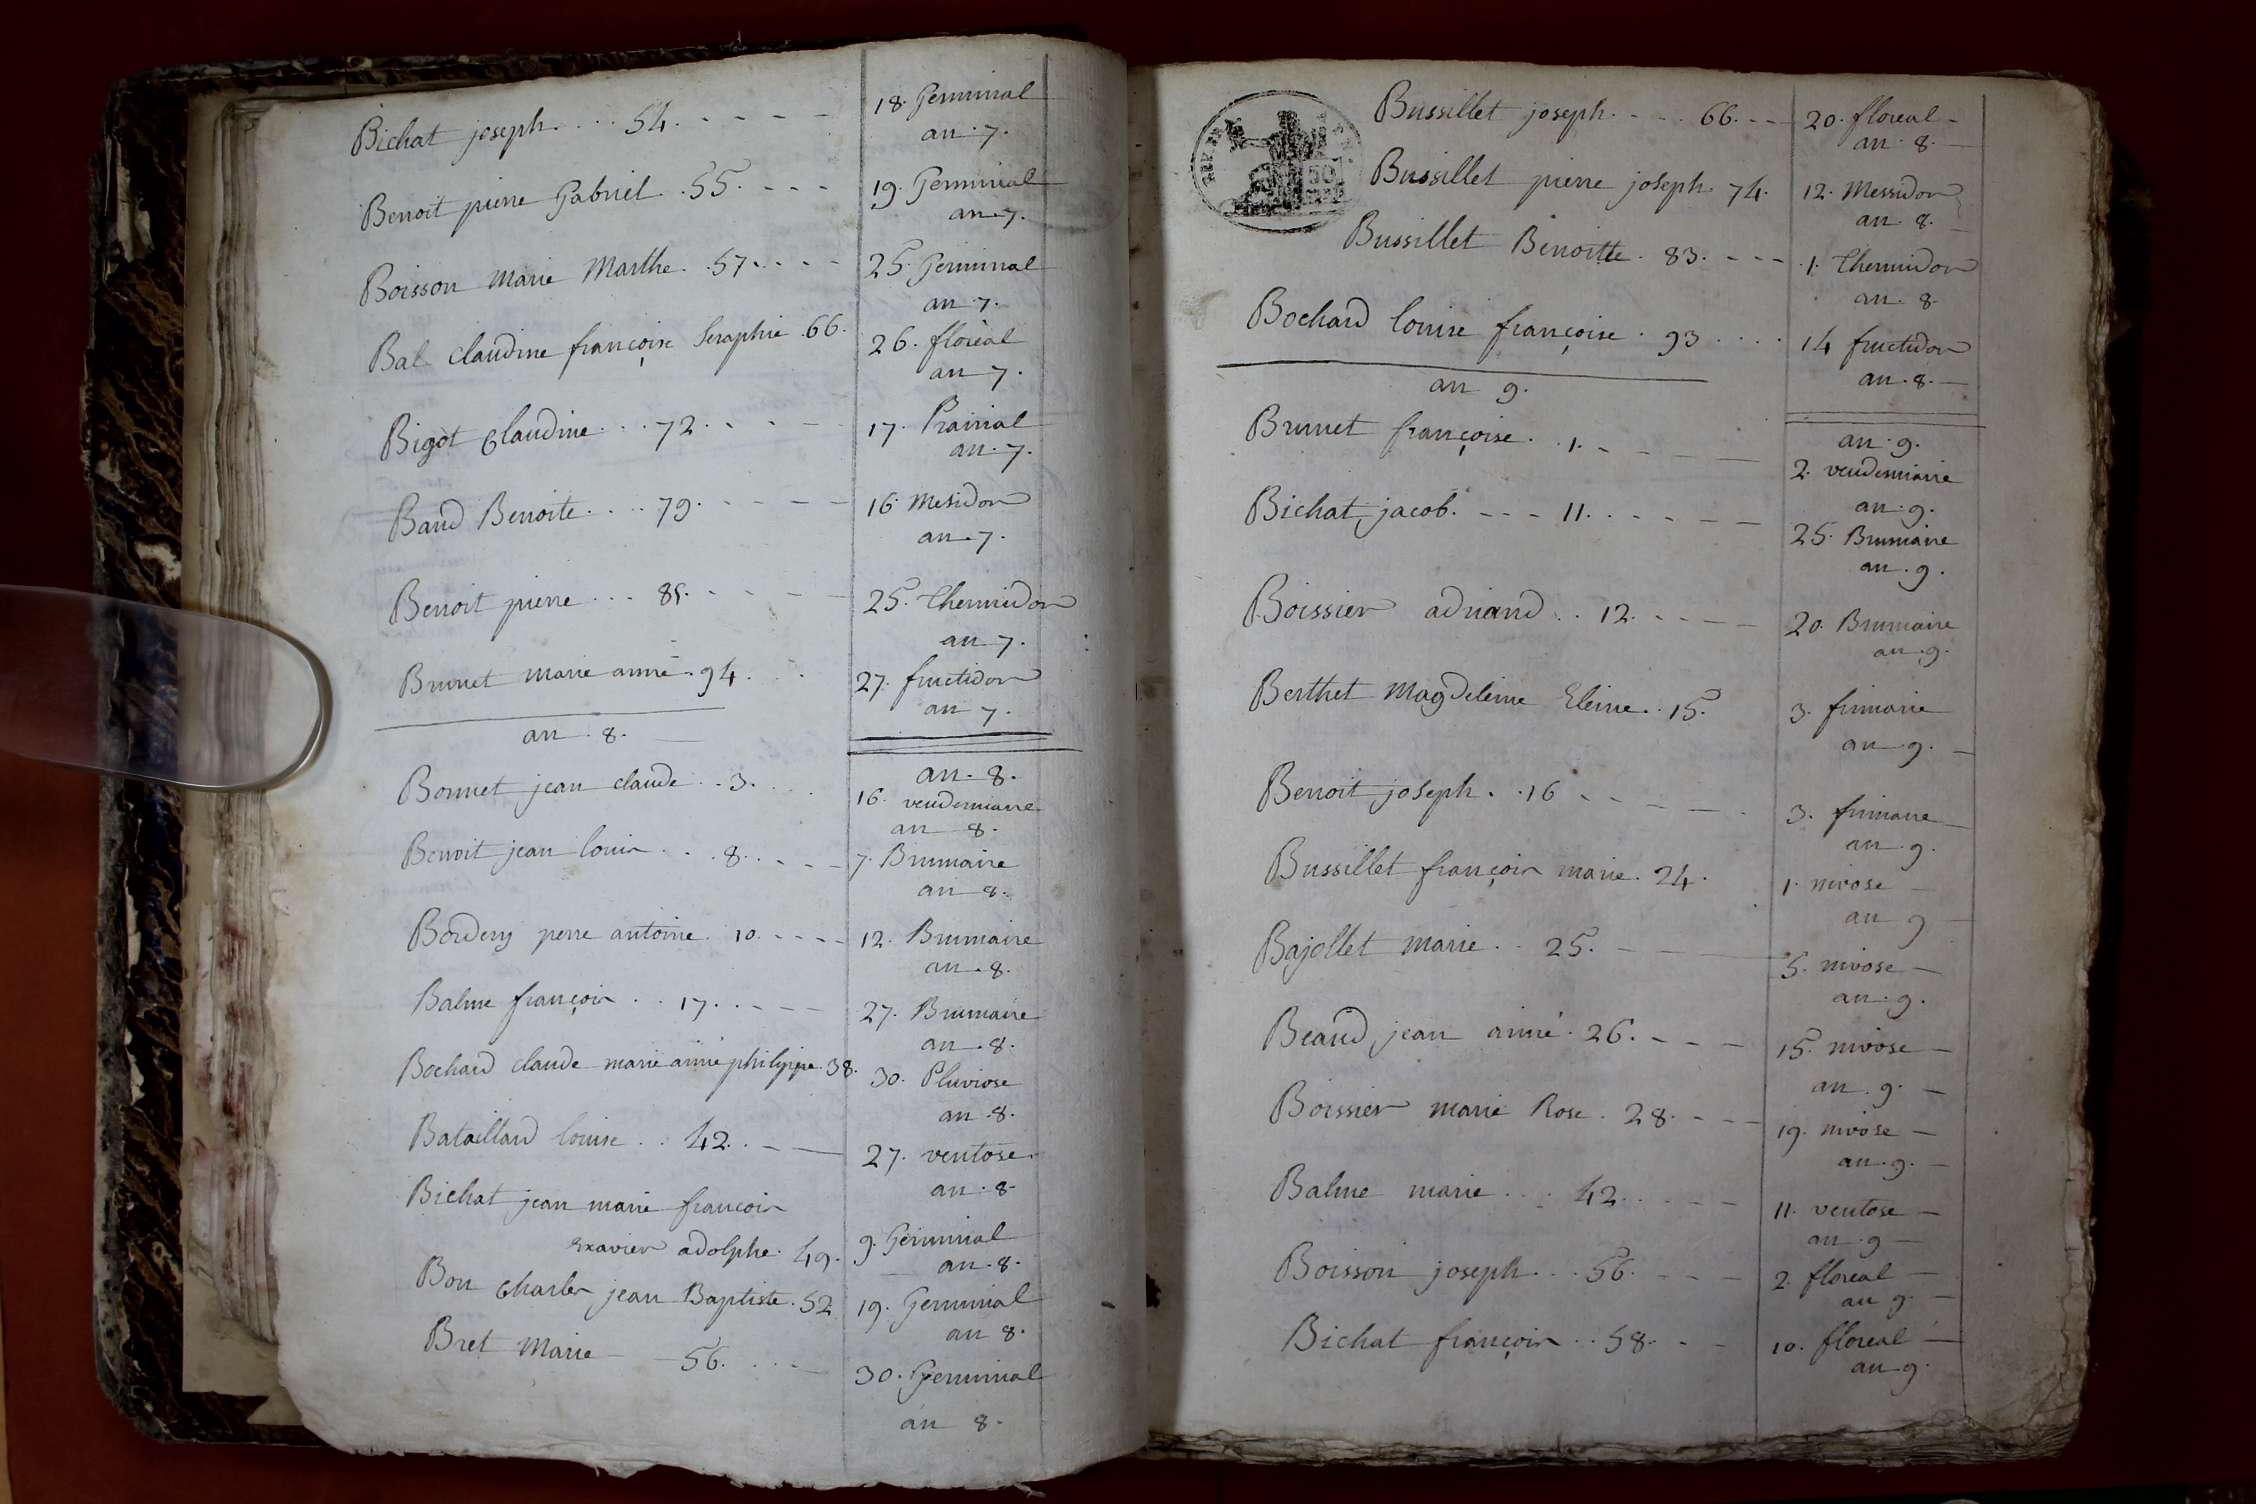 Bichat joseph. . . 54. - - - - - 18. Germinal
an. 7.
Benoit pierre Gabriel . 55. - - - 19. Germinal
an. 7.
Boisson Marie Marthe. . 57. - - - 25. Germinal
an. 7.
Bal claudine françoise Seraphie . 66. 26. floréal
an 7.
Bigot claudine . . . 72. - - - 17. Prairial
an. 7.
Baud Benoite . . . 79. - - - - 16. Mesidor
an. 7.
Benoit pierre . . . 85. - - - - 25. Thermidor
an 7.
Brunet marie anné . 94. . . 27. fructidor
an 7.
an . 8.
an. 8.
Bonnet jean claude . . 3. . . 16. vendemiaire
an 8.
Benoit jean louis . . . 8. . - - - 7. Brumaire
an 8.
Bordery perre antoine. 10. - - - - 12. Brumaire
an. 8.
Balme françois . . 17. . - - - 27. Brumaire
an. 8.
Bochard claude marie aimé philippe. 38. 30. Pluviose
an. 8.
Bataillard louise . . 42. . - — 27. ventose.
an. 8.
Bichat jean marie francois
Exavier adolphe. 49. 9. Germinal
an. 8.
Bon Charles jean Baptiste. 52 19. Germinal
an 8.
Bret Marie — 56. . . - — 30. Germinal
an 8.
Bussillet joseph. - - . 66. - — 20. floreal -
an. 8. —
Bussillet pierre joseph. 74. 12. Messidor
an. 8. —
Bussillet Benoitte. 83. - - - . 1. Thermidor
an. 8.
Bochard louise françoise . 93 . . . . 14 fructidor
an. 8. —
an 9.
an. 9.
Brunet françoise. . 1. - - - - — 2. vendemiaire
an. 9.
Bichat jacob. - - - 11. . - - - — 25. Brumaire
an. 9.
Boissier adriand . . 12. - - - — 20. Brumaire
an. 9.
Berthet Magdeleine Eleine. . 15. 3. frimaire
an. 9. —
Benoit joseph. . 16 - - - — . 3. frimaire
an. 9.
Bussillet françois marie. 24. 1. nivose —
an 9 —
Bajollet marie . . 25. - — 5. nivose —
an. 9.
Beaud jean aimé. 26. - - — 15. nivose —
an. 9. —
Boissier marie Rose . 28. - - - 19. nivose —
an. 9. —
Balme marie . . . 42. . - - — 11. ventose —
an. 9 —
Boisson joseph. . . 56. - - — 2. floreal —
an 9. —
Bichat françois . . 58. - - 10. floreal —
an 9.